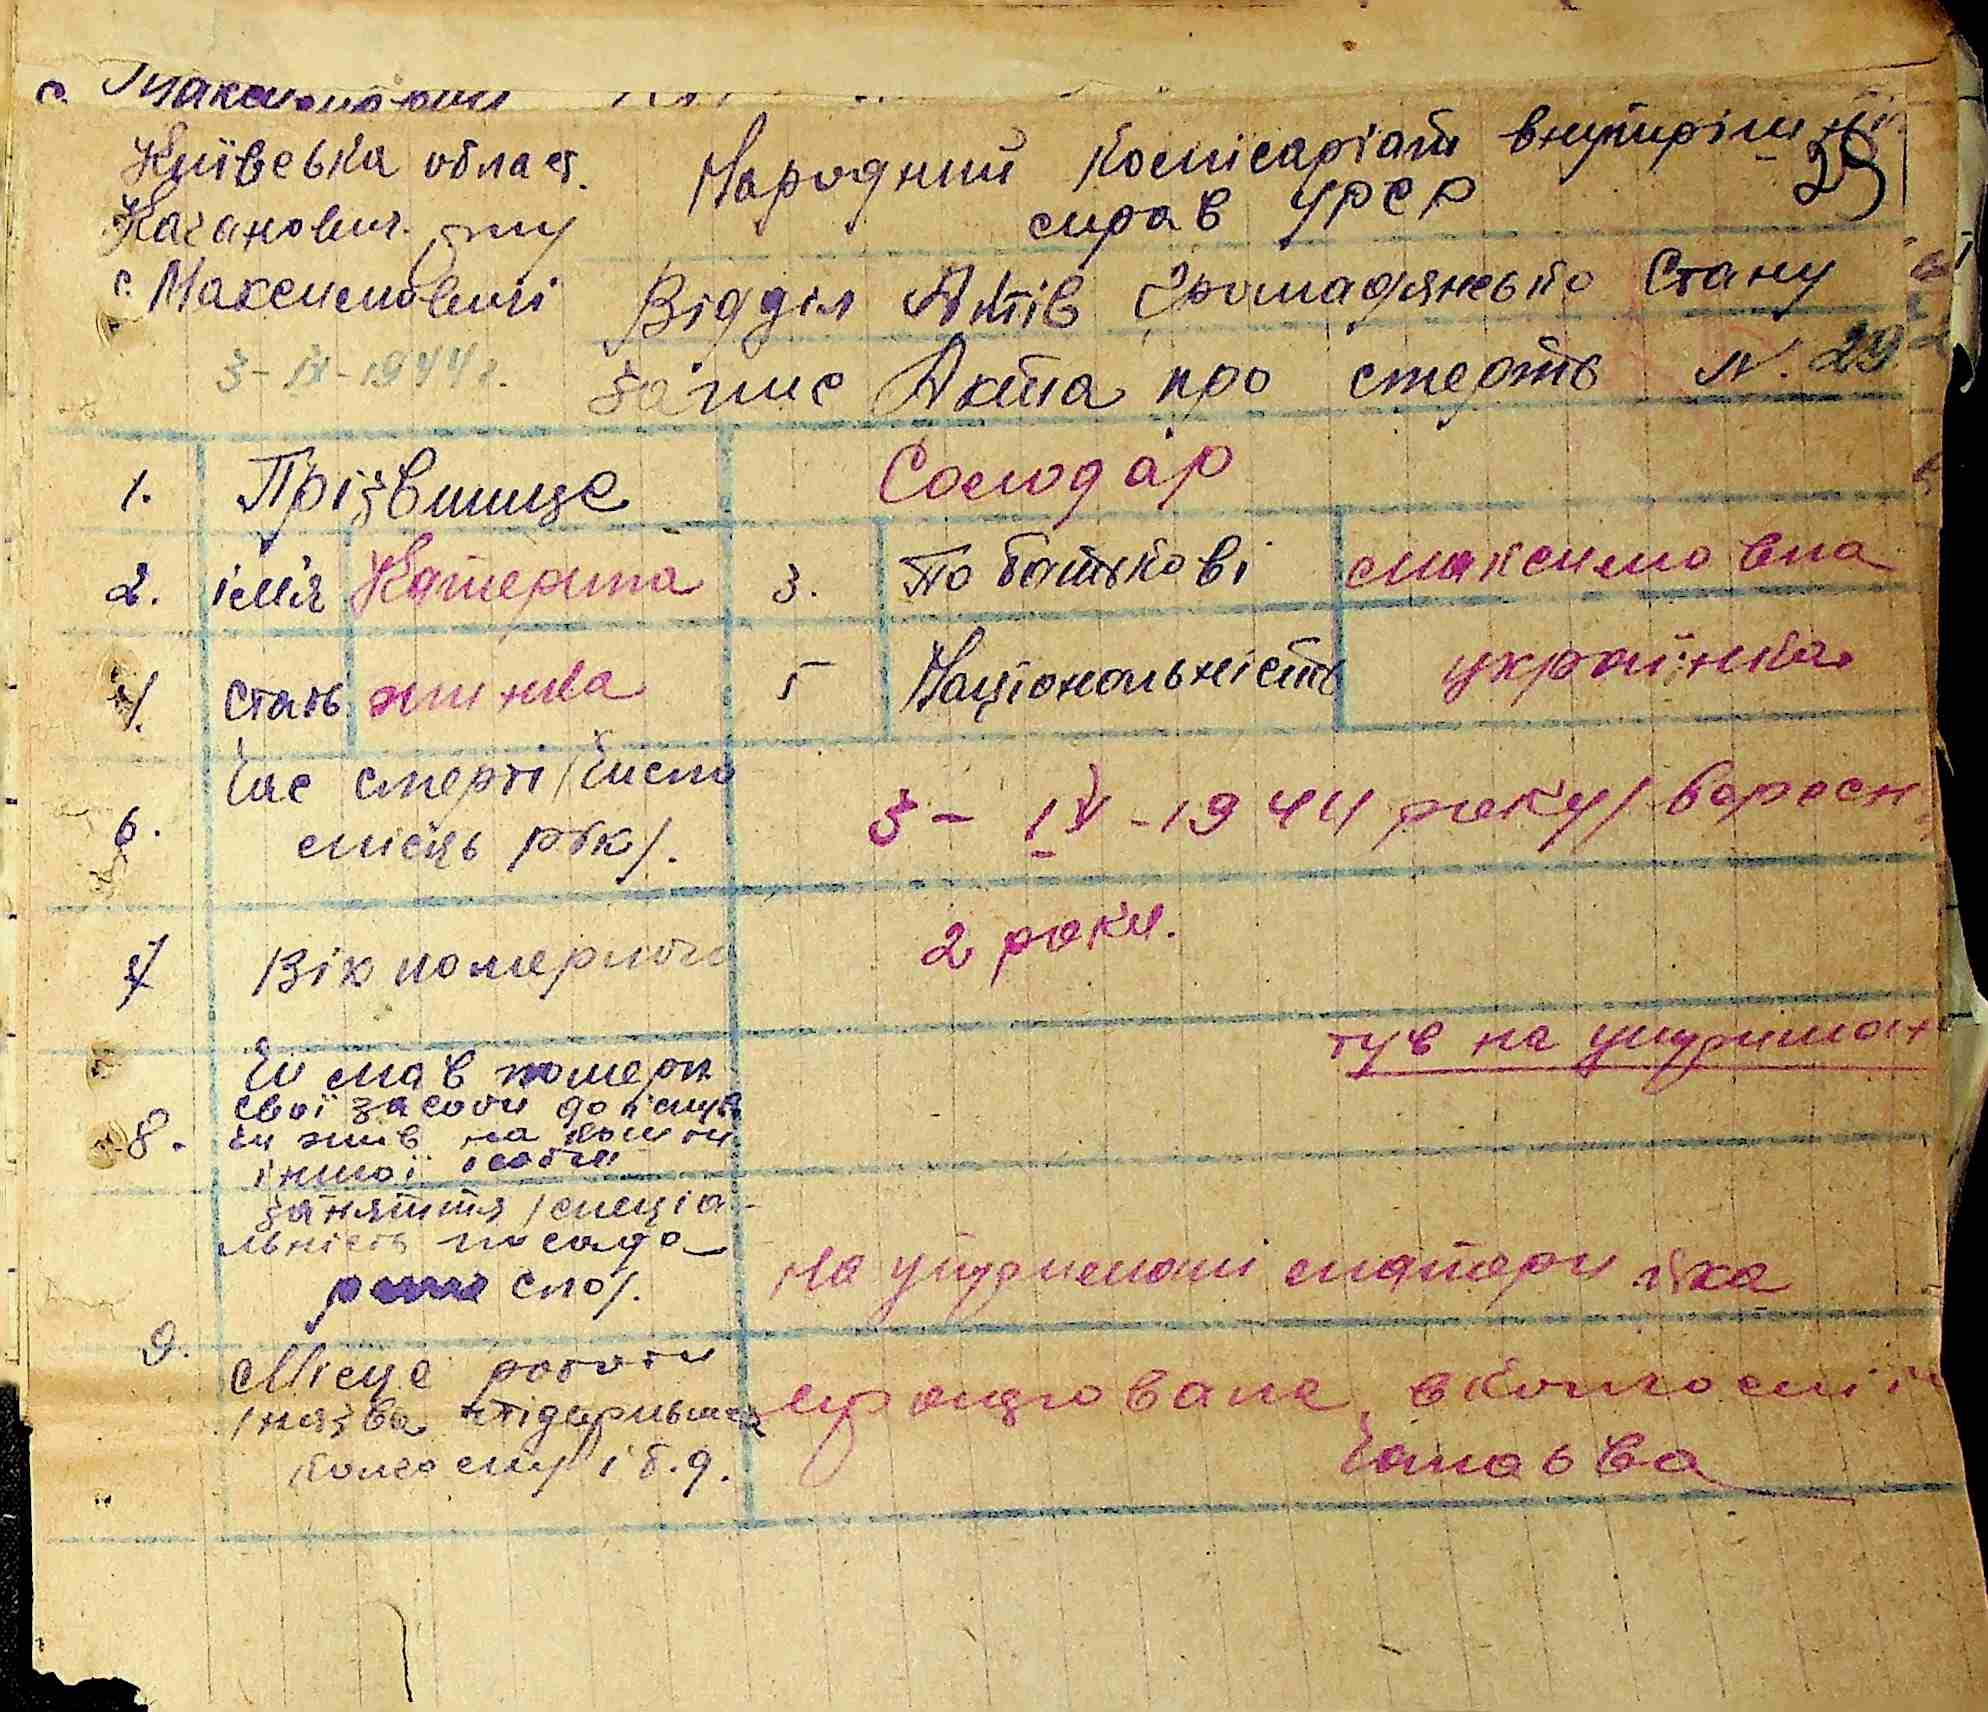 с. Максимовичі
Київська област.
Каганович. р-ну
с. Максимовичі
3-IX-1944 г.
Народний Комісаріат внутрішні
25
справ УРСР
Відділ Актів Громадянсько Стану
Запис Акта про смерть N. 29
1. Прізвище Солодар
2. ім'я Катерина 3. По батькові максимовна
4. стать жинка 5 Національність українка
6. Час смерті / число
місяць рік/. 3-IX-1944 року / вересн
7 Вік померлого 2 роки.
8. Чи мав померл
свої засоби до існув
чи жив на кошти
іншої особи
був на утриман
Заняття / спеціа-
льність посада
сто/.
на утримані матери яка
9. Місце роботи
/назва підприємс
колгоспу і т. д.
працювала в колгоспі ім
Чапаєва